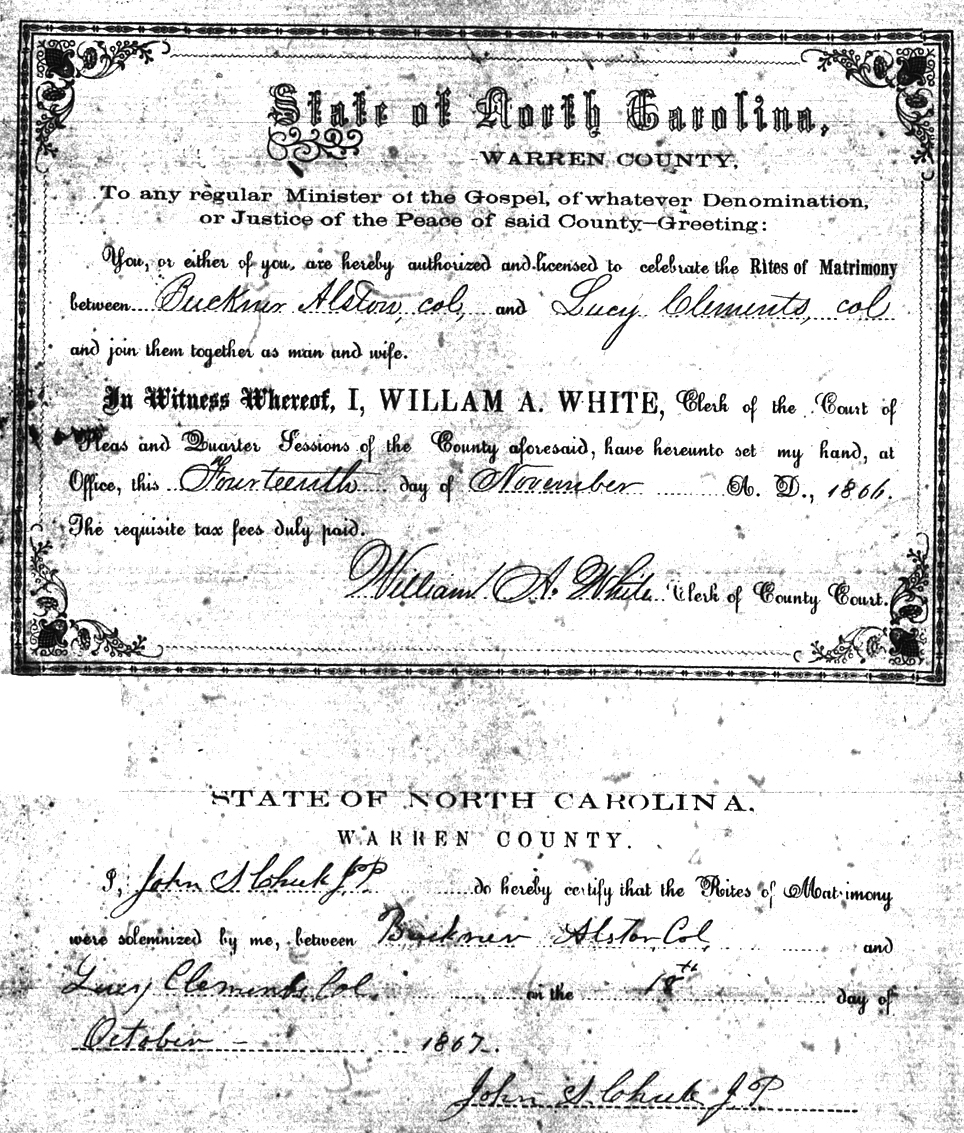 State of North Carolina,
WARREN COUNTY.
To any regular Minister of the Gospel, of whatever Denomination,
or Justice of the Peace of said County—Greeting:
You, or either of you, are hereby authorized and licensed to celebrate the Rites of Matrimony
between Buckner Alston, col, and Lucy Clements, col
and join them together as man and wife.
In Witness Whereof, I, WILLAM A. WHITE, Clerk of the Court of
Pleas and Quarter Sessions of the County aforesaid, have hereunto set my hand, at
Office, this Fourteenth day of November A. D., 1866.
The requisite tax fees duly paid.
William A. White Clerk of County Court.
STATE OF NORTH CAROLINA.
WARREN COUNTY.
I, John S Cheek J P do hereby certify that the Rites of Matrimony
were solemnized by me, between Buckner Alston Col and
Lucy Clements Col. on the 18th day of
October 1867.
John S. Cheek J. P